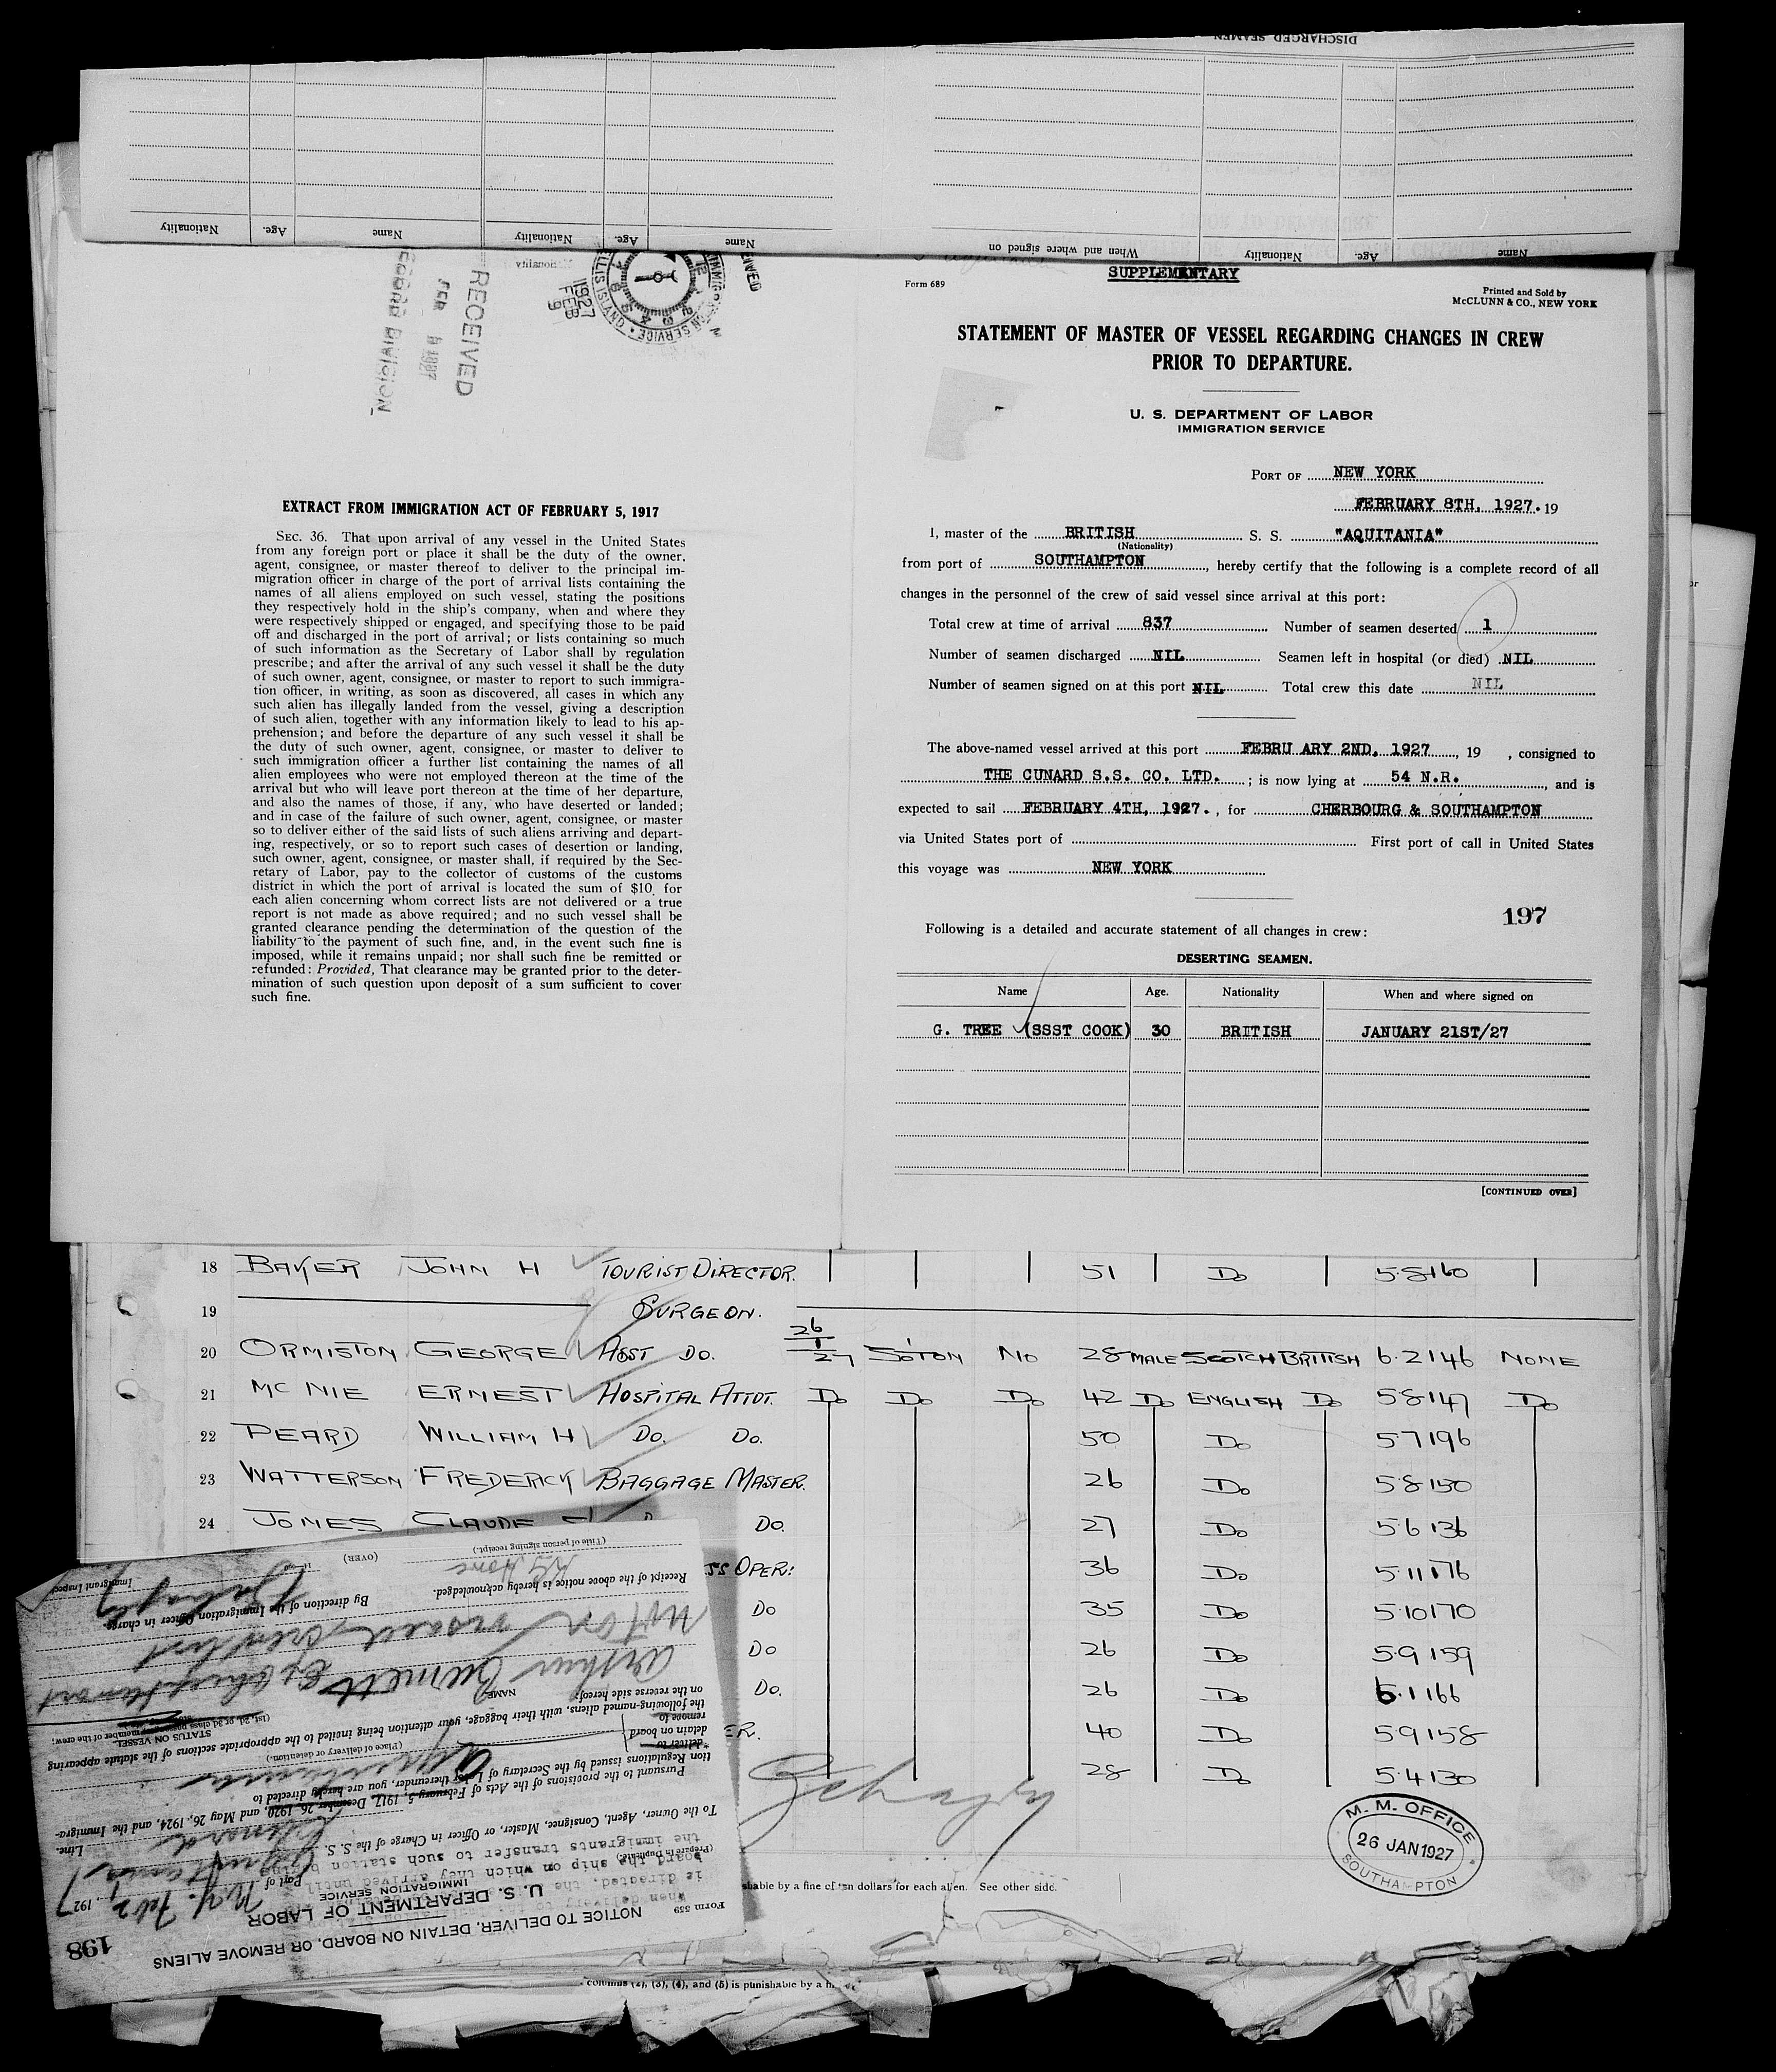 DISCHARGED SEAMEN
Name Age. Nationality When and where signed on
Name Age. Nationality Name Age. Nationality
RECEIVED
FEB 1927
RECORD DIVISION
1927
FEB
9
IMMIGRATION SERVICE
ELLIS ISLAND
EXTRACT FROM IMMIGRATION ACT OF FEBRUARY 5, 1917
SEC. 36. That upon arrival of any vessel in the United States
from any foreign port or place it shall be the duty of the owner,
agent, consignee, or master thereof to deliver to the principal im-
migration officer in charge of the port of arrival lists containing the
names of all aliens employed on such vessel, stating the positions
they respectively hold in the ship's company, when and where they
were respectively shipped or engaged, and specifying those to be paid
off and discharged in the port of arrival; or lists containing so much
of such information as the Secretary of Labor shall by regulation
prescribe; and after the arrival of any such vessel it shall be the duty
of such owner, agent, consignee, or master to report to such immigra-
tion officer, in writing, as soon as discovered, all cases in which any
such alien has illegally landed from the vessel, giving a description
of such alien, together with any information likely to lead to his ap-
prehension; and before the departure of any such vessel it shall be
the duty of such owner, agent, consignee, or master to deliver to
such immigration officer a further list containing the names of all
alien employees who were not employed thereon at the time of the
arrival but who will leave port thereon at the time of her departure,
and also the names of those, if any, who have deserted or landed;
and in case of the failure of such owner, agent, consignee, or master
so to deliver either of the said lists of such aliens arriving and depart-
ing, respectively, or so to report such cases of desertion or landing,
such owner, agent, consignee, or master shall, if required by the Sec-
retary of Labor, pay to the collector of customs of the customs
district in which the port of arrival is located the sum of $10 for
each alien concerning whom correct lists are not delivered or a true
report is not made as above required; and no such vessel shall be
granted clearance pending the determination of the question of the
liability to the payment of such fine, and, in the event such fine is
imposed, while it remains unpaid; nor shall such fine be remitted or
refunded: Provided, That clearance may be granted prior to the deter-
mination of such question upon deposit of a sum sufficient to cover
such fine.
SUPPLEMENTARY
Form 689
Printed and Sold by
McCLUNN & CO., NEW YORK
STATEMENT OF MASTER OF VESSEL REGARDING CHANGES IN CREW
PRIOR TO DEPARTURE.
U. S. DEPARTMENT OF LABOR
IMMIGRATION SERVICE
PORT OF NEW YORK
FEBRUARY 8TH, 1927. 19
I, master of the BRITISH S. S. "AQUITANIA"
(Nationality)
from port of SOUTHAMPTON, hereby certify that the following is a complete record of all
changes in the personnel of the crew of said vessel since arrival at this port:
Total crew at time of arrival 837 Number of seamen deserted 1
Number of seamen discharged NIL Seamen left in hospital (or died) NIL
Number of seamen signed on at this port NIL Total crew this date NIL
The above-named vessel arrived at this port FEBRU ARY 2ND, 1927, 19 , consigned to
THE CUNARD S.S. CO. LTD. ; is now lying at 54 N.R. , and is
expected to sail FEBRUARY 4TH, 1927. , for CHERBOURG & SOUTHAMPTON
via United States port of First port of call in United States
this voyage was NEW YORK
197
Following is a detailed and accurate statement of all changes in crew:
DESERTING SEAMEN.
Name Age. Nationality When and where signed on
G. TREE (SSST COOK) 30 BRITISH JANUARY 21ST/27
[CONTINUED OVER]
18 BAKER JOHN H TOURIST DIRECTOR. 51 Do 5·8 160
19 SURGEON.
20 ORMISTON GEORGE ASST Do. 26/1/27 SOTON NO 28 MALE SCOTCH BRITISH 6·2 146 NONE
21 MC NIE ERNEST HOSPITAL ATTDT. Do Do Do 42 Do ENGLISH Do 5·8 147 Do
22 PEARD WILLIAM H Do. Do. 50 Do 5·7 196
23 WATTERSON FREDERICK BAGGAGE MASTER. 26 Do 5·8 150
24 JONES CLAUDE Do. 27 Do 5·6 136
SS OPER: 36 Do 5·11 176
Do 35 Do 5·10 170
Do 26 Do 5·9 159
Do. 26 Do 6·1 166
ER. 40 Do 5·9 158
28 Do 5·4 130
M. M. OFFICE
26 JAN 1927
SOUTHAMPTON
shable by a fine of ten dollars for each alien. See other side.
columns (2), (3), (4), and (5) is punishable by a
198
Form 559
NOTICE TO DELIVER, DETAIN ON BOARD, OR REMOVE ALIENS
U. S. DEPARTMENT OF LABOR
IMMIGRATION SERVICE
Port of N.Y. Feb 2, 1927
(Prepare in Duplicate)
To the Owner, Agent, Consignee, Master, or Officer in Charge of the S. S. Aquitania
Cunard Line.
Pursuant to the provisions of the Acts of February 5, 1917, December 26, 1920, and May 26, 1924, and the Immigra-
tion Regulations issued by the Secretary of Labor thereunder, you are hereby directed to
deliver to
detain on board
remove to
Aquitania
(Place of delivery or detention.)
the following-named aliens, with their baggage, your attention being invited to the appropriate sections of the statute appearing
on the reverse side hereof:
NAME STATUS ON VESSEL
(1st, 2d, or 3d class passenger, member of the crew,
Arthur Burnett
not on vessel crew list
By direction of the Immigration Officer in charge.
Immigrant Inspector
Receipt of the above notice is hereby acknowledged.
(Title of person signing receipt.)
(OVER)